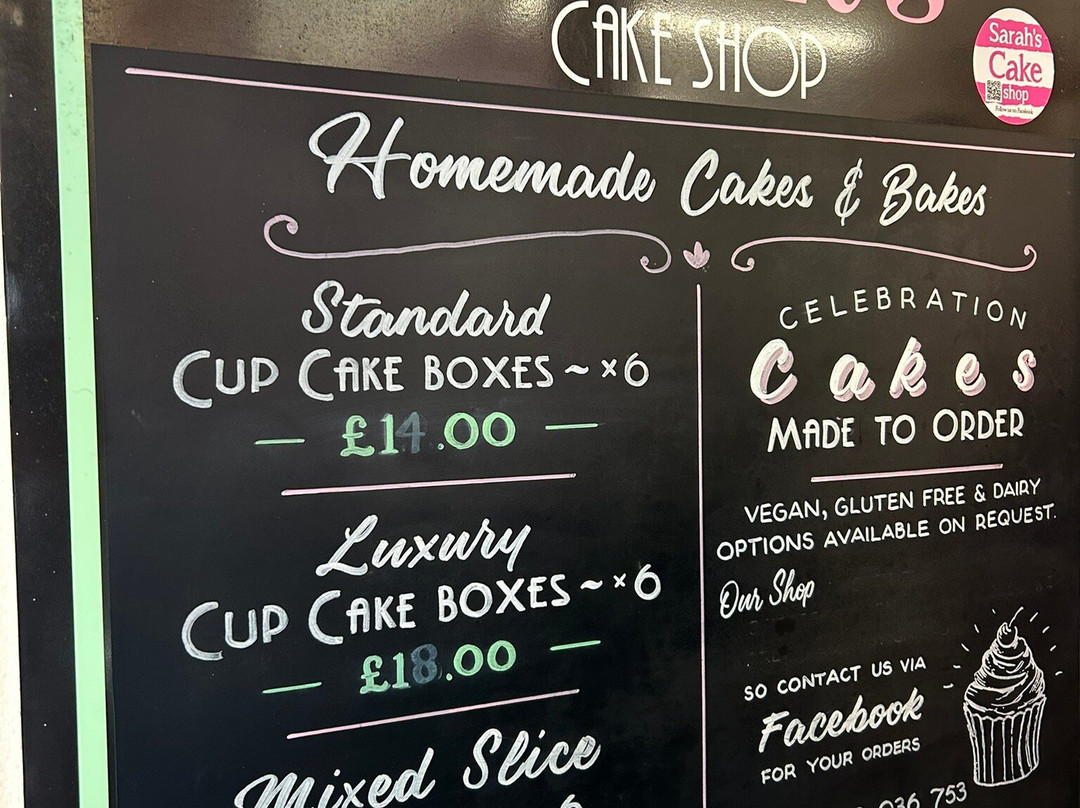 CAKE SHOP
Sarah's
Cake
shop
Follow us on Facebook
Homemade Cakes & Bakes
Standard
CUP CAKE BOXES ~ ×6
£14.00
Luxury
CUP CAKE BOXES ~ ×6
£18.00
Mixed Slice
CELEBRATION
Cakes
MADE TO ORDER
VEGAN, GLUTEN FREE & DAIRY
OPTIONS AVAILABLE ON REQUEST.
Our Shop
SO CONTACT US VIA
Facebook
FOR YOUR ORDERS
036 753